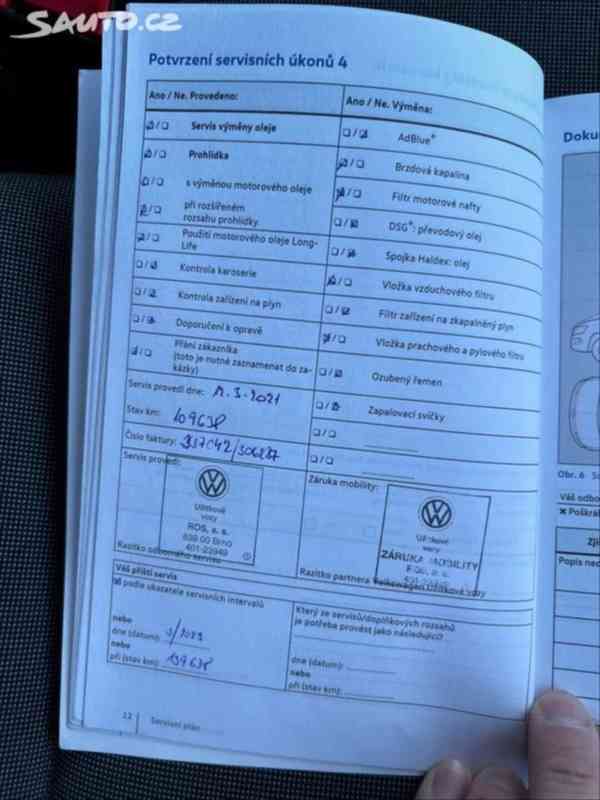 SAUTO.CZ
Potvrzení servisních úkonů 4
Ano / Ne. Provedeno:
Servis výměny oleje
Prohlídka
s výměnou motorového oleje
při rozšířeném
rozsahu prohlídky.
Použití motorového oleje Long-
Life
Kontrola karoserie
Kontrola zařízení na plyn
Doporučení k opravě
Přání zákazníka
(toto je nutné zaznamenat do za-
kázky)
Ano / Ne. Výměna:
AdBlue®
Brzdová kapalina
Filtr motorové nafty
DSG®: převodový olej
Spojka Haldex: olej
Vložka vzduchového filtru
Filtr zařízení na zkapalněný plyn
Vložka prachového a pylového filtru
Ozubený řemen
Zapalovací svíčky
Servis provedl dne: 3.2021
Stav km: 109638
Číslo faktury:
Servis provedl:
Užitkové
vozy
ROS, a. s.
639 00 Brno
Razítko odborného servisu
Záruka mobility:
Užitkové
vozy
ZÁRUKA MOBILITY
Razítko partnera Volkswagen Užitkové vozy
Váš příští servis
podle ukazatele servisních intervalů
nebo
dne (datum): 3/2023
nebo
při (stav km): 139638
Který ze servisů/doplňkových rozsahů
je potřeba provést jako následující?
dne (datum):
nebo
při (stav km):
22
Servisní plán
Doku
Obr. 6
Váš odbo
× Poškrá
Zji
Popis ned